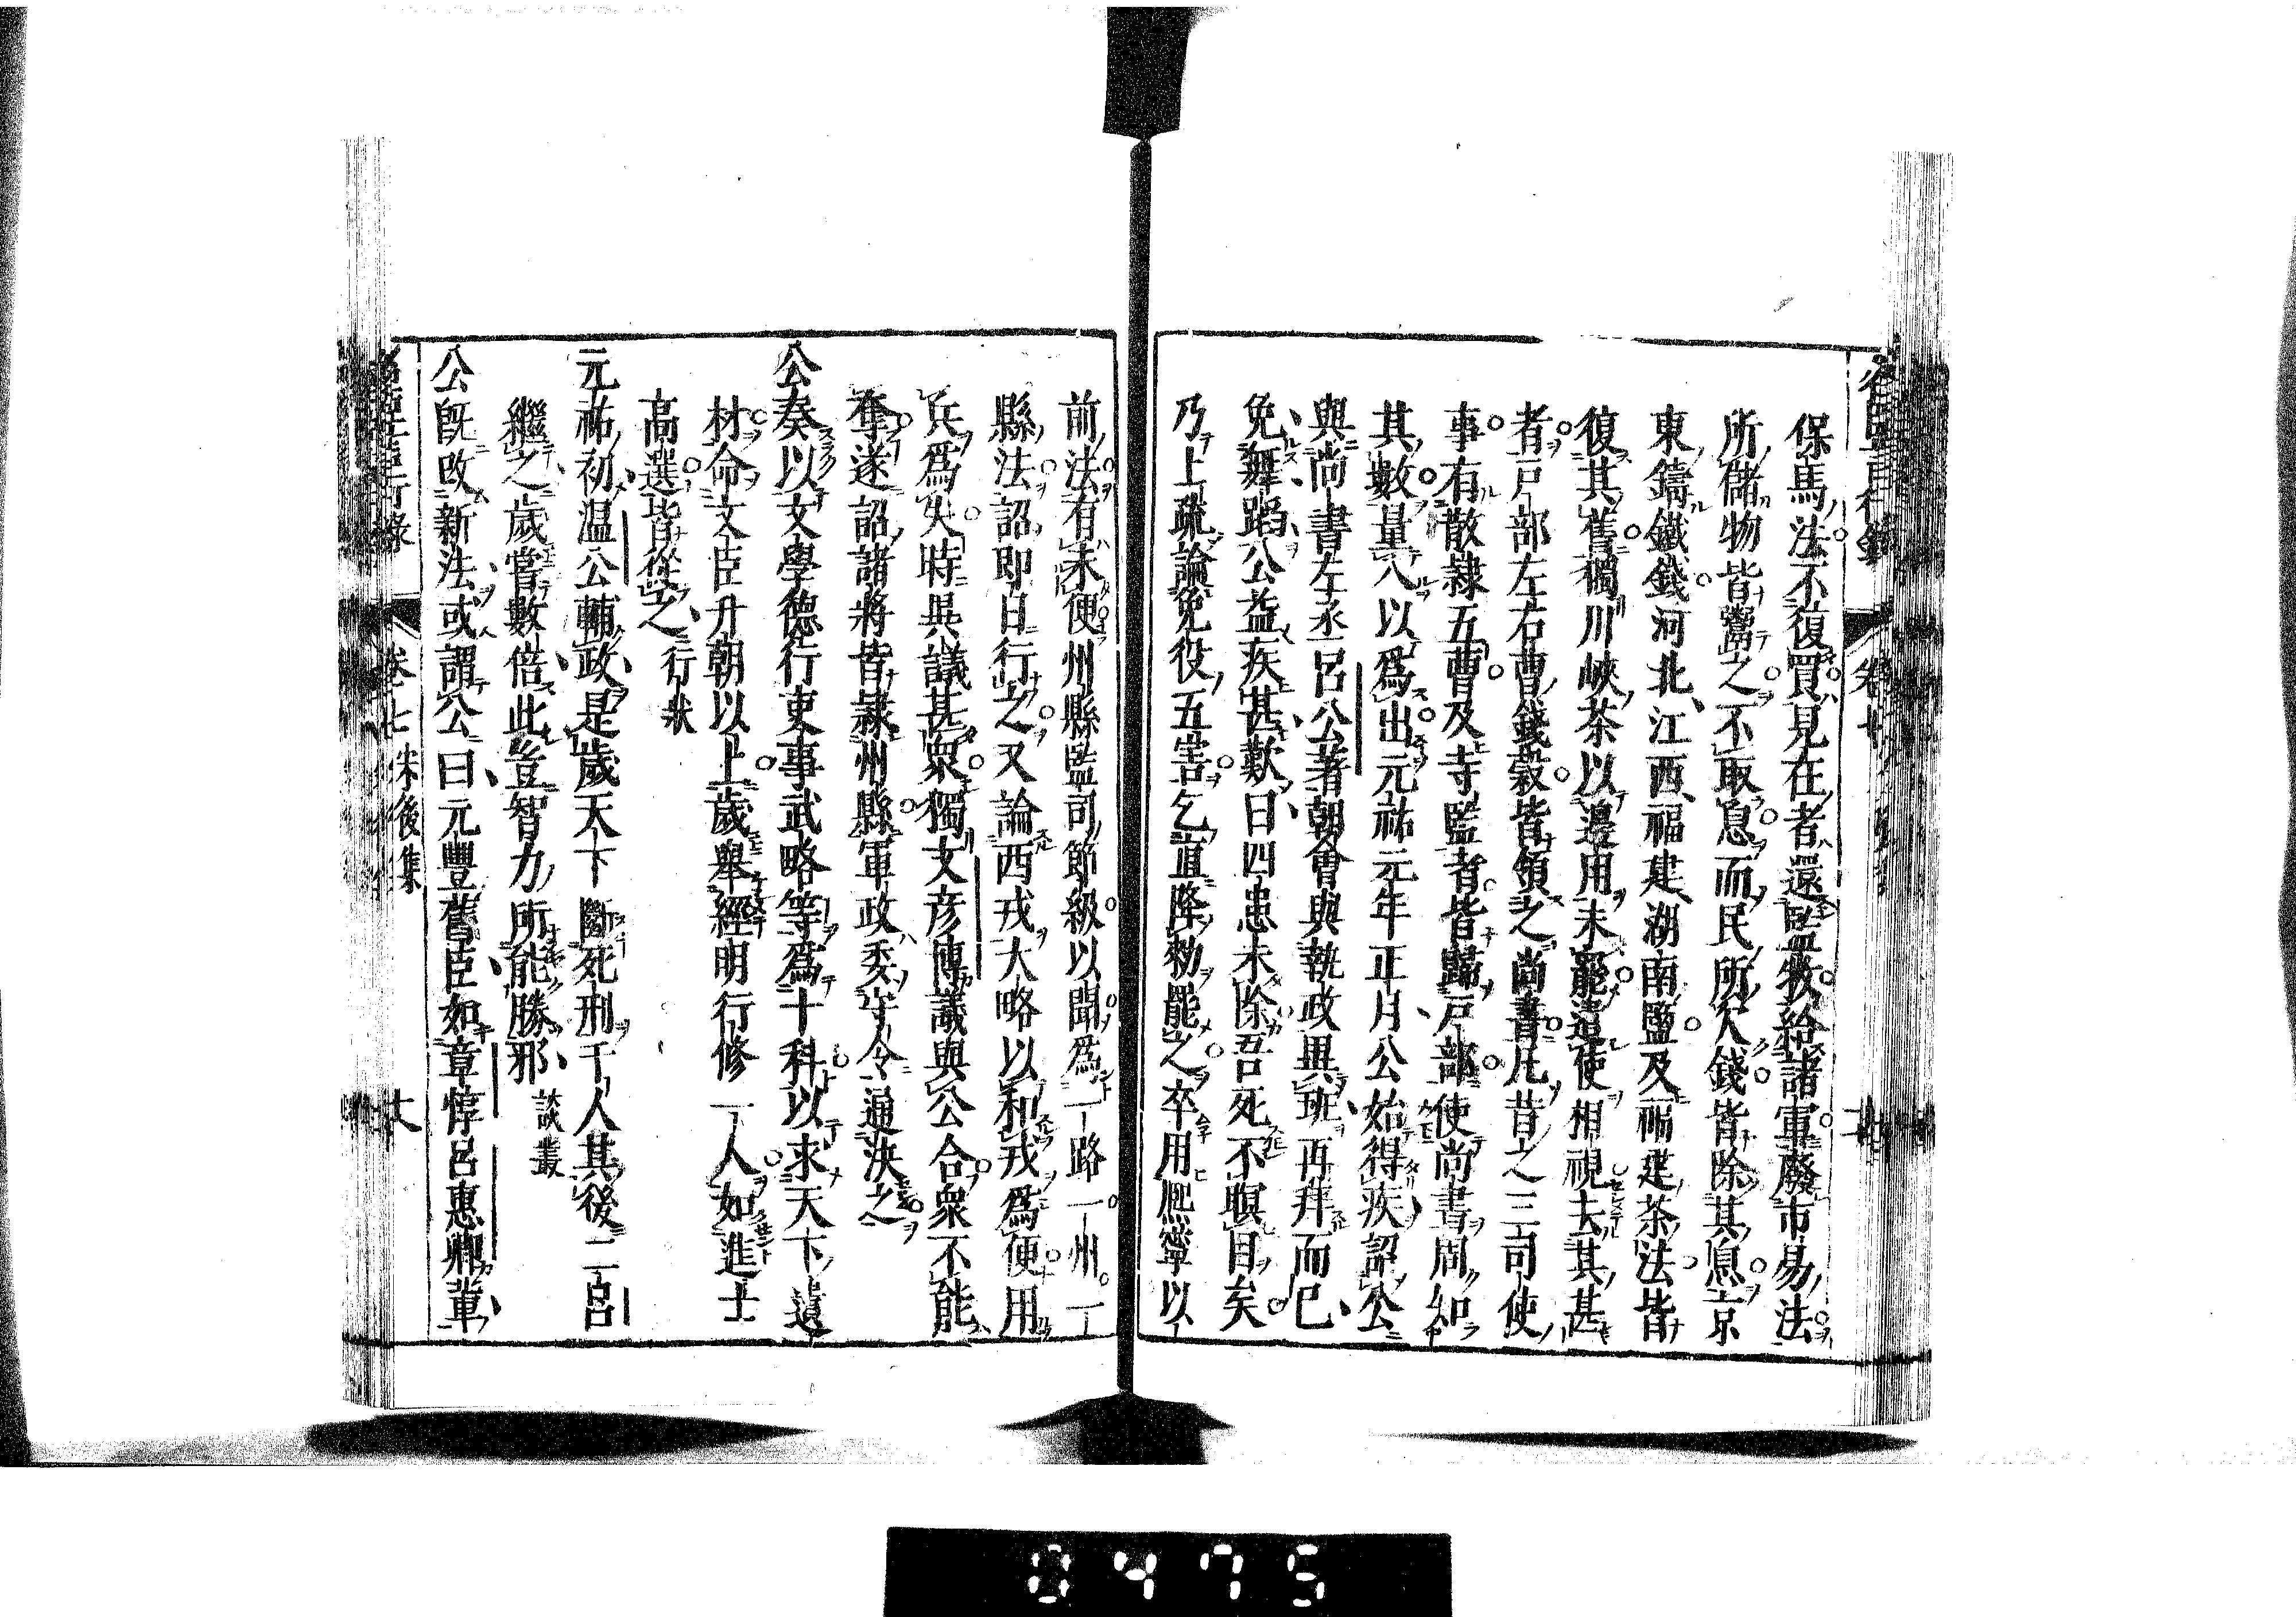 保馬法不復買見在者還監牧給諸軍廢市易法
所儲物皆鬻之不取息而民所欠錢皆除其息京
東鑄鐵錢河北江西福建湖南鹽及福建茶法皆
復其舊獨川峽茶以邊用未罷遣使相視去其甚
者戸部左右曹錢穀皆領之尚書凡昔之三司使
事有散隷五曹及寺監者皆歸戸部使尚書周知
其數量入以爲出元祐元年正月公始得疾詔公
與尚書左丞呂公著朝會與執政異班再拜而已
免舞蹈公益疾甚歎曰四患未除吾死不瞑目矣
乃上疏論免役五害乞直降勑罷之卒用熈寧以
前法有未便州縣監司節級以聞爲一路一州一
縣法詔即日行之又論西戎大略以和戎爲便用
兵爲失時異議甚衆獨文彦博議與公合衆不能
奪遂詔諸將皆隷州縣軍政委守令通決之
公奏以文學德行吏事武略等爲十科以求天下遺
材命文臣升朝以上歲舉經明行修一人如進士
高選皆從之 行狀
元祐初温公輔政是歲天下斷死刑千人其後二呂
繼之歲嘗數倍此豈智力所能勝邪 談叢
公既改新法或謂公曰元豐舊臣如章惇呂惠卿輩
名臣言行録 卷七 後集